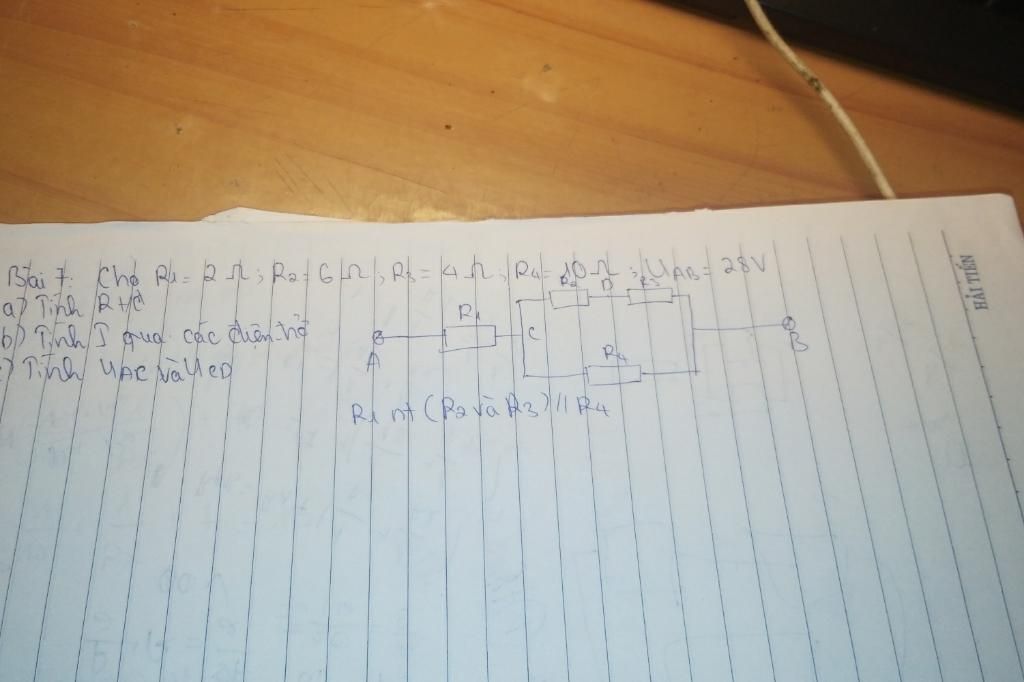 Bài 7: Cho R1 = 2 Ω; R2 = 6 Ω; R3 = 4 Ω; R4 = 10 Ω; UAB = 28V
a) Tính Rtđ
b) Tính I qua các điện trở
c) Tính UAC và UCD
R1
R2
D
R3
A
C
B
R4
R1 nt (R2 và R3) // R4
HẢI TIẾN